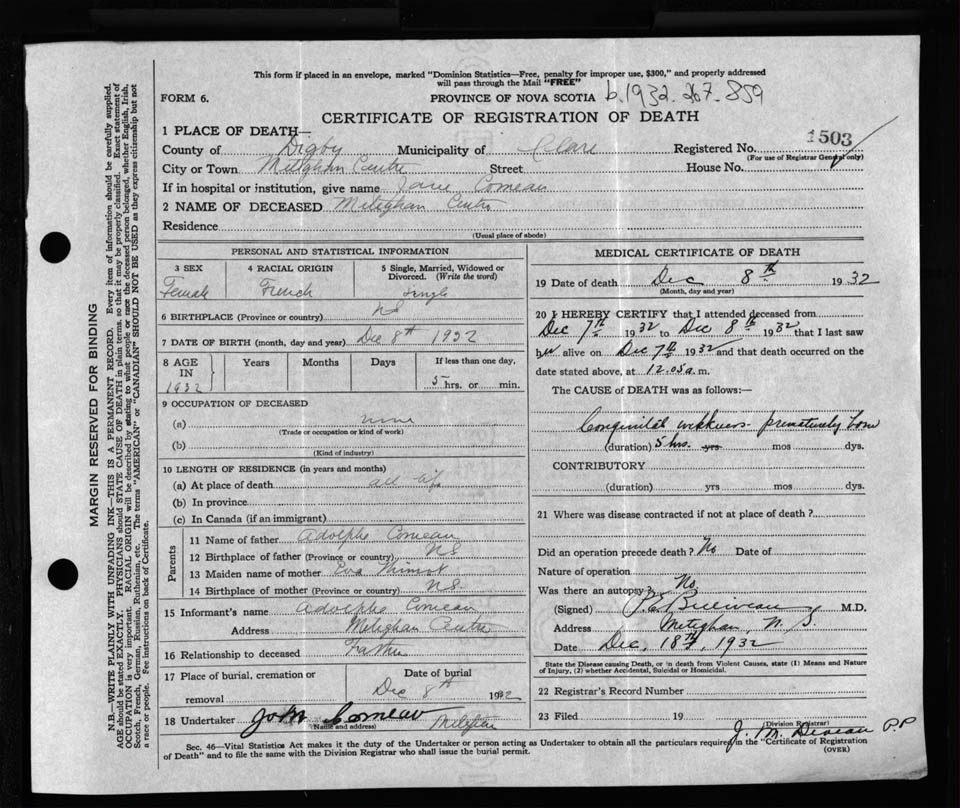 This form if placed in an envelope, marked "Dominion Statistics—Free, penalty for improper use, $300," and properly addressed
will pass through the Mail "FREE"
FORM 6.
PROVINCE OF NOVA SCOTIA b.1932.267.859
CERTIFICATE OF REGISTRATION OF DEATH
1 PLACE OF DEATH—
1503
County of Digby Municipality of Clare Registered No.
(For use of Registrar General only)
City or Town Meteghan Centre Street House No.
If in hospital or institution, give name Comeau
2 NAME OF DECEASED Meteghan Centre
Residence
(Usual place of abode)
PERSONAL AND STATISTICAL INFORMATION
3 SEX 4 RACIAL ORIGIN 5 Single, Married, Widowed or Divorced. (Write the word)
Female French Single
6 BIRTHPLACE (Province or country) NS
7 DATE OF BIRTH (month, day and year) Dec 8th 1932
8 AGE IN Years Months Days If less than one day,
1932 5 hrs. or min.
9 OCCUPATION OF DECEASED
(a) none
(Trade or occupation or kind of work)
(b)
(Kind of industry)
10 LENGTH OF RESIDENCE (in years and months)
(a) At place of death all life
(b) In province
(c) In Canada (if an immigrant)
Parents
11 Name of father Adolphe Comeau
12 Birthplace of father (Province or country) NS
13 Maiden name of mother Eva
14 Birthplace of mother (Province or country) NS.
15 Informant's name Adolphe Comeau
Address Meteghan Centre
16 Relationship to deceased Father
17 Place of burial, cremation or removal Date of burial
Dec 8th 1932
18 Undertaker John Comeau
(Name and address)
MEDICAL CERTIFICATE OF DEATH
19 Date of death Dec 8th 1932
(Month, day and year)
20 I HEREBY CERTIFY that I attended deceased from
Dec 7th 1932 to Dec 8th 1932 that I last saw
her alive on Dec 7th 1932 and that death occurred on the
date stated above, at 12.05 a.m.
The CAUSE of DEATH was as follows:—
Congenital weakness- prematurely born
(duration) 5 hrs. yrs mos dys.
CONTRIBUTORY
(duration) yrs mos dys.
21 Where was disease contracted if not at place of death?
Did an operation precede death? No Date of
Nature of operation
Was there an autopsy? No
(Signed) M.D.
Address Meteghan, N. S.
Date Dec, 18th, 1932
State the Disease causing Death, or in death from Violent Causes, state (1) Means and Nature
of Injury, (2) whether Accidental, Suicidal or Homicidal.
22 Registrar's Record Number
23 Filed 19
(Division Registrar)
J. M. P.P
Sec. 46—Vital Statistics Act makes it the duty of the Undertaker or person acting as Undertaker to obtain all the particulars required in the "Certificate of Registration
of Death" and to file the same with the Division Registrar who shall issue the burial permit. (OVER)
MARGIN RESERVED FOR BINDING
N.B.—WRITE PLAINLY WITH UNFADING INK—THIS IS A PERMANENT RECORD. Every item of information should be carefully supplied.
AGE should be stated EXACTLY. PHYSICIANS should STATE CAUSE OF DEATH in plain terms, so that it may be properly classified. Exact statement of
OCCUPATION is very important. RACIAL ORIGIN will be described by stating to what people or race the deceased person belonged, whether English, Irish,
Scotch, French, German, Russian, Ruthenian, etc. The terms "AMERICAN" or "CANADIAN" SHOULD NOT BE USED as they express citizenship but not
a race or people. See instructions on back of Certificate.